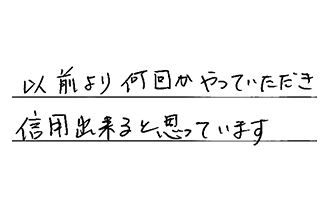 以前より何回かやっていただき
信用出来ると思っています